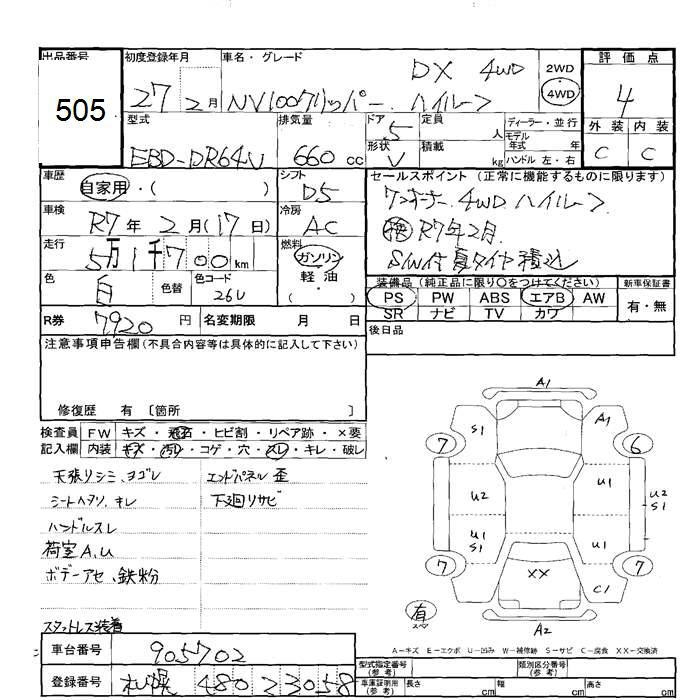 出品番号 初度登録年月 車名・グレード 評価点
505 27 2月 NV100クリッパー ハイルーフ DX 4WD 2WD 4WD 4
外装 内装
C C
型式 排気量 ドア 定員 ディーラー・並行
EBD-DR64V 660cc 5 人 モデル年式 年
形状 積載 ハンドル 左・右
V kg
車歴 自家用・( ) シフト D5 セールスポイント (正常に機能するものに限ります)
ワンオーナー. 4WD ハイルーフ
車検 R7年2月(17日) 冷房 AC
R7年2月
走行 5万1千700km 燃料 ガソリン 軽油 ( ・ )
SW付夏タイヤ積込
色 白 色替 色コード 26U
装備品 (純正品に限り○をつけてください) 新車保証書
PS PW ABS エアB AW 有・無
SR ナビ TV カワ
R券 7920円 名変期限 月 日
後日品
注意事項申告欄(不具合内容等は具体的に記入して下さい)
修復歴 有 〔箇所 〕
検査員 FW キズ・飛石・ヒビ割・リペア跡・×要
記入欄 内装 キズ・汚れ・コゲ・穴・スレ・キレ・破レ
天張リシミ、ヨゴレ エンドパネル歪
シートヘタリ、キレ 下廻リサビ
ハンドルスレ
荷室A、U
ボデーアセ、鉄粉
スタットレス装着
A1
S1 A1
7 6
U2 U1 U2 S1
U1 S1 U1
7 XX 7
C1
有 スペア
A2
A-キズ E-エクボ U-凹み W-補修跡 S-サビ C-腐食 XX-交換済
車台番号 905702
登録番号 札幌 480 2 3058
型式指定番号(参考) 類別区分番号(参考)
車庫証明用(参考) 長さ cm 幅 cm 高さ cm